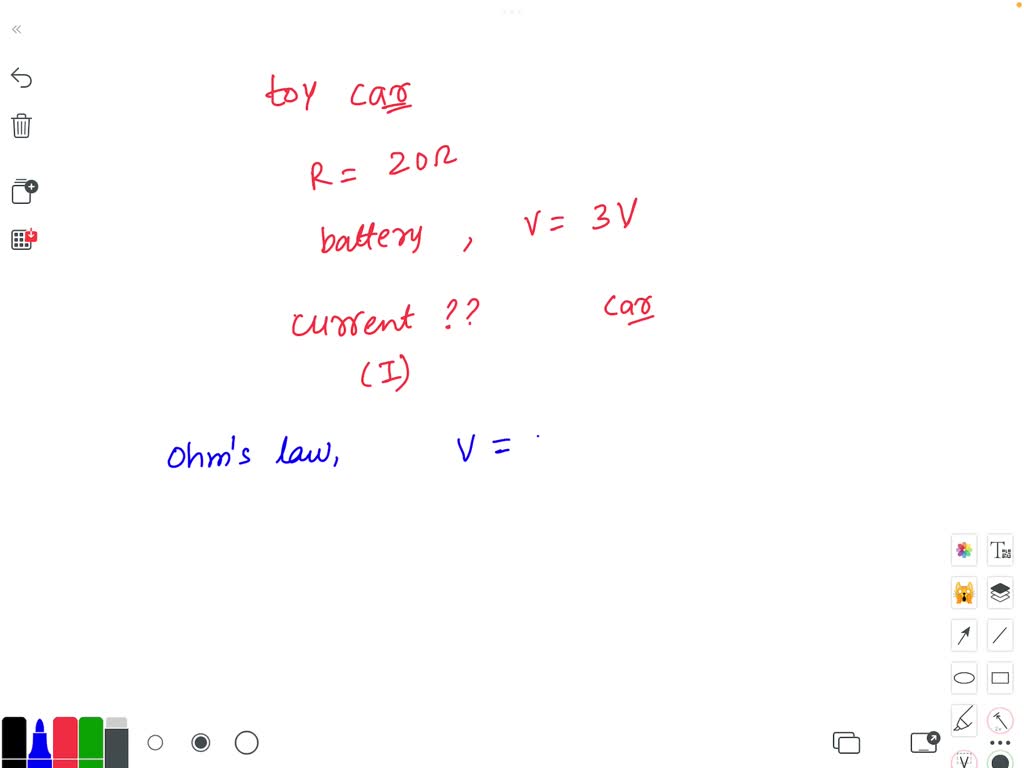 toy car
R = 20Ω
battery , V = 3V
current ?? car
(I)
Ohm's law, V =